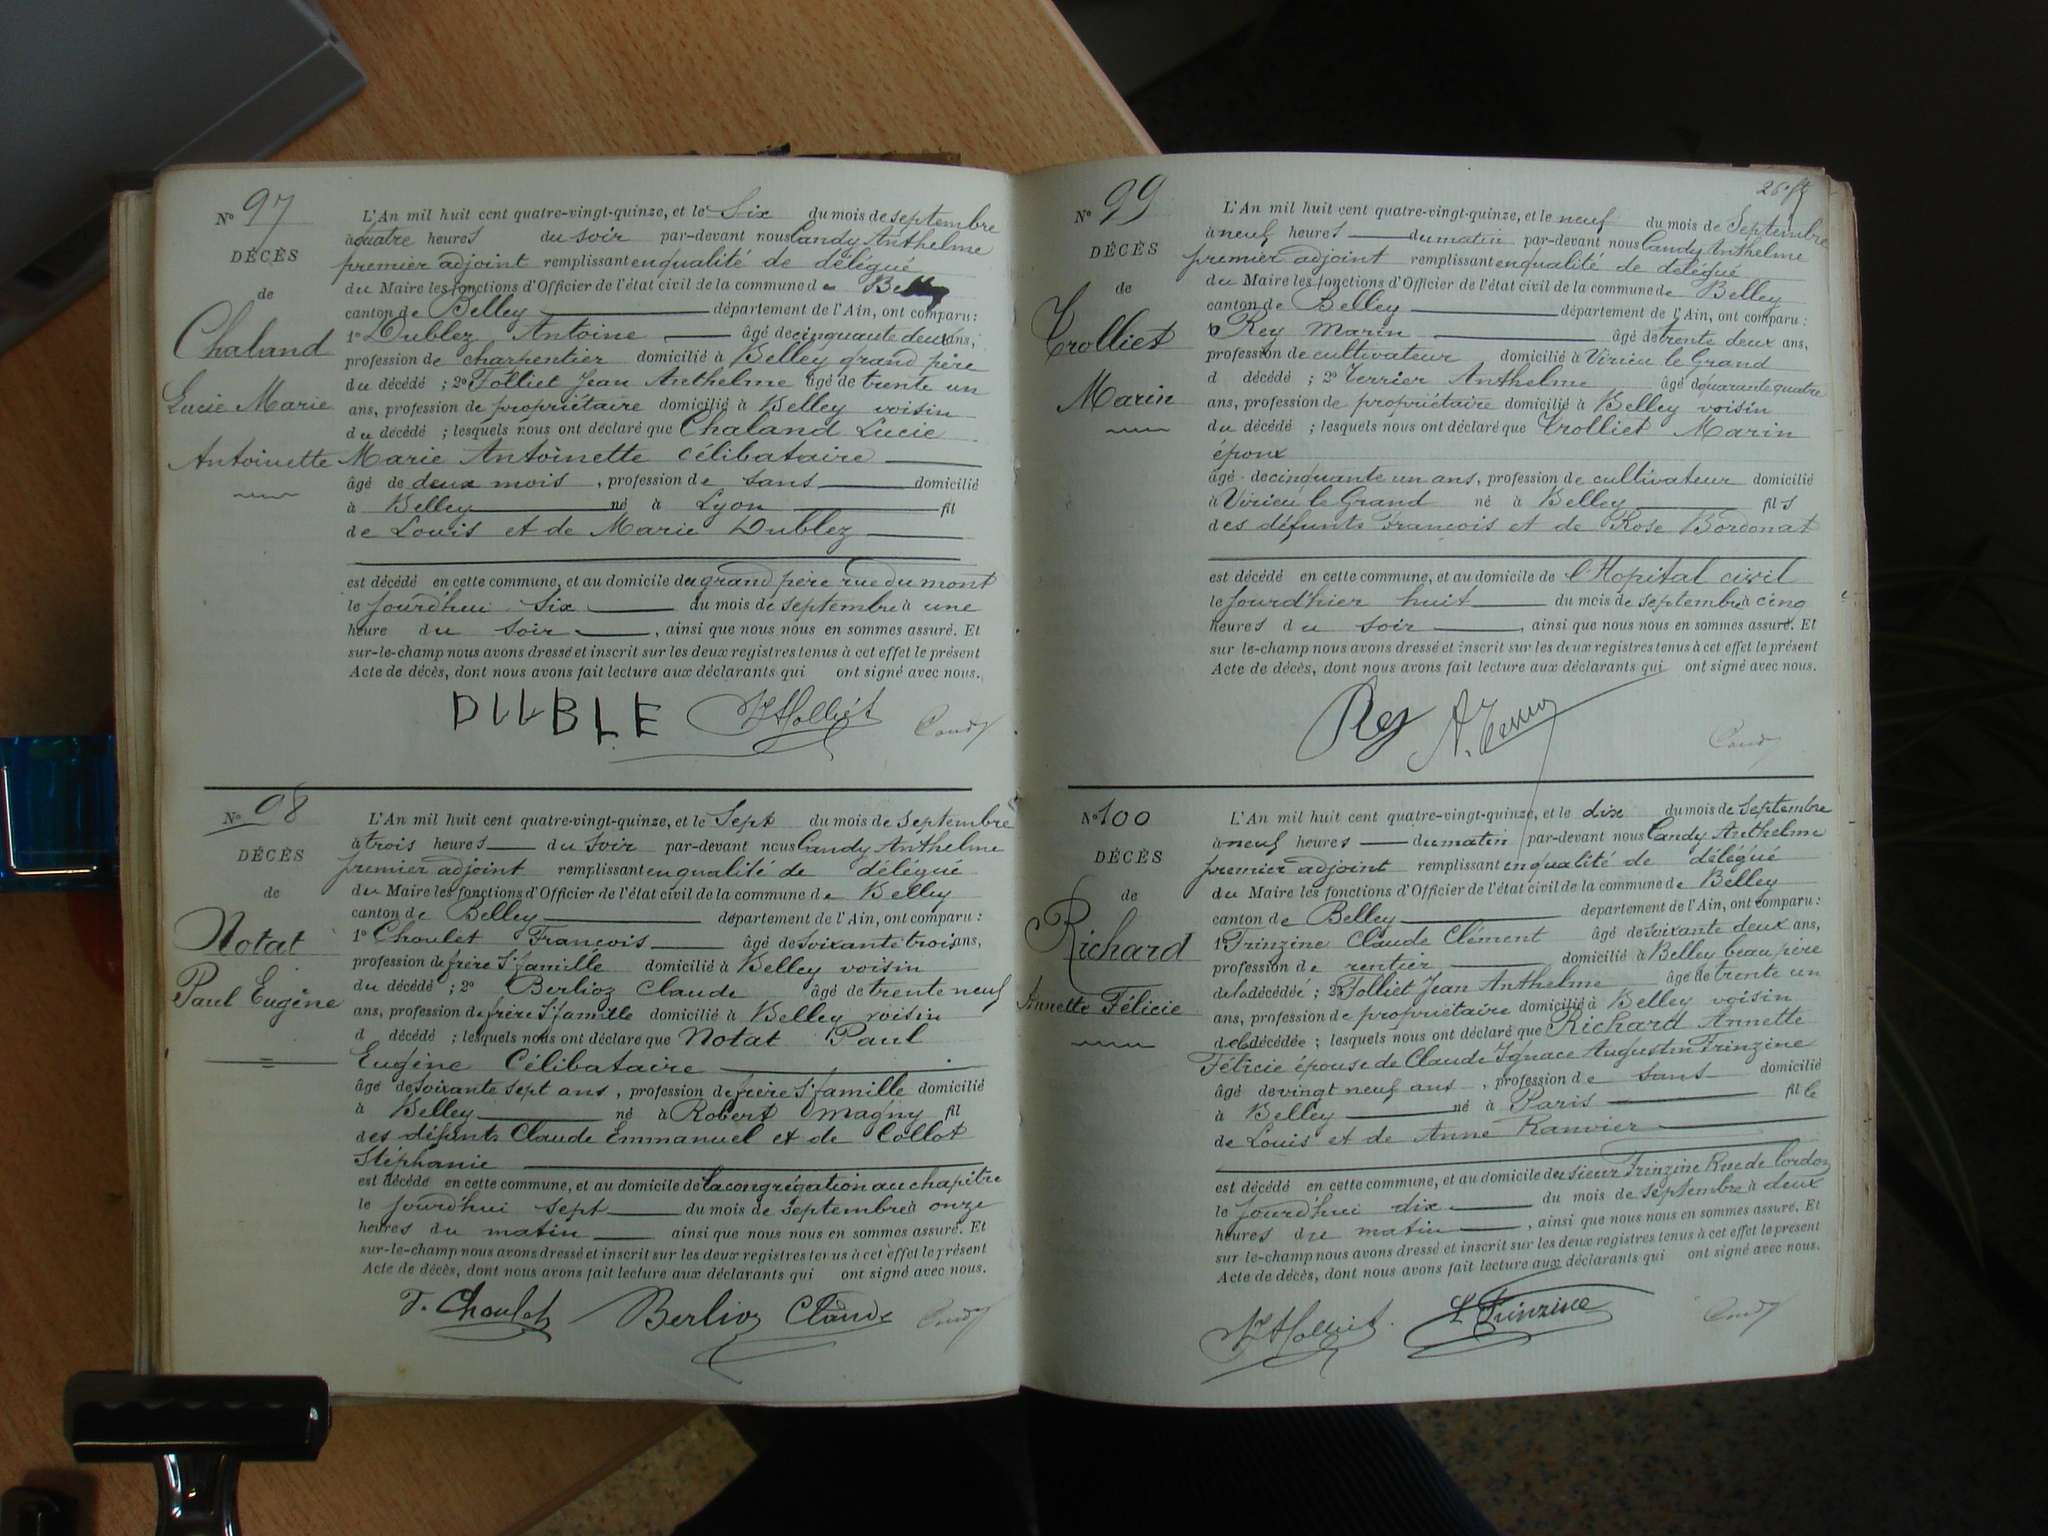 Nº 97
DÉCÈS
de
Chaland
Lucie Marie
Antoinette
L'An mil huit cent quatre-vingt-quinze, et le Six du mois de septembre
à quatre heures du soir par-devant nous Candy Anthelme
premier adjoint remplissant en qualité de délégué
du Maire les fonctions d'Officier de l'état civil de la commune de Belley
canton de Belley département de l'Ain, ont comparu :
1º Dublez Antoine âgé de cinquante deux ans,
profession de charpentier domicilié à Belley grand père
du décédé ; 2º Tolliet Jean Anthelme âgé de trente un
ans, profession de propriétaire domicilié à Belley voisin
du décédé ; lesquels nous ont déclaré que Chaland Lucie
Marie Antoinette célibataire
âgé de deux mois, profession de sans domicilié
à Belley né à Lyon fil
de Louis et de Marie Dublez
est décédé en cette commune, et au domicile du grand père rue du mont
le jourd'hui six du mois de septembre à une
heure du soir, ainsi que nous nous en sommes assuré. Et
sur-le-champ nous avons dressé et inscrit sur les deux registres tenus à cet effet le présent
Acte de décès, dont nous avons fait lecture aux déclarants qui ont signé avec nous.
DUBLE JATolliet Candy
Nº 98
DÉCÈS
de
Notat
Paul Eugène
L'An mil huit cent quatre-vingt-quinze, et le Sept du mois de septembre
à trois heures du soir par-devant nous Candy Anthelme
premier adjoint remplissant en qualité de délégué
du Maire les fonctions d'Officier de l'état civil de la commune de Belley
canton de Belley département de l'Ain, ont comparu :
1º Choulet François âgé de soixante trois ans,
profession de frère Ste famille domicilié à Belley voisin
du décédé ; 2º Berlioz Claude âgé de trente neuf
ans, profession de frère Ste famille domicilié à Belley voisin
d décédé ; lesquels nous ont déclaré que Notat Paul
Eugène Célibataire
âgé de soixante sept ans, profession de frère Ste famille domicilié
à Belley né à Robert Magny fil
des défunts Claude Emmanuel et de Collot
Stéphanie
est décédé en cette commune, et au domicile de la congrégation au chapitre
le jourd'hui sept du mois de septembre à onze
heures du matin ainsi que nous nous en sommes assuré. Et
sur-le-champ nous avons dressé et inscrit sur les deux registres tenus à cet effet le présent
Acte de décès, dont nous avons fait lecture aux déclarants qui ont signé avec nous.
F. Choulet Berlioz Claude Candy
Nº 99
DÉCÈS
de
Trolliet
Marin
L'An mil huit cent quatre-vingt-quinze, et le neuf du mois de Septembre
à neuf heures du matin par-devant nous Candy Anthelme
premier adjoint remplissant en qualité de délégué
du Maire les fonctions d'Officier de l'état civil de la commune de Belley
canton de Belley département de l'Ain, ont comparu :
1º Rey Marin âgé de trente deux ans,
profession de cultivateur domicilié à Virieu le Grand
d décédé ; 2º Terrier Anthelme âgé de quarante quatre
ans, profession de propriétaire domicilié à Belley voisin
du décédé ; lesquels nous ont déclaré que Trolliet Marin
époux
âgé de cinquante un ans, profession de cultivateur domicilié
à Virieu le Grand né à Belley fils
des défunts François et de Rose Bordonat
est décédé en cette commune, et au domicile de l'Hopital civil
le jourd'hier huit du mois de septembre à cinq
heures du soir, ainsi que nous nous en sommes assuré. Et
sur le-champ nous avons dressé et inscrit sur les deux registres tenus à cet effet le présent
Acte de décès, dont nous avons fait lecture aux déclarants qui ont signé avec nous.
Rey A. Terrier Candy
Nº 100
DÉCÈS
de
Richard
Annette Félicie
L'An mil huit cent quatre-vingt-quinze, et le dix du mois de septembre
à neuf heures du matin par-devant nous Candy Anthelme
premier adjoint remplissant en qualité de délégué
du Maire les fonctions d'Officier de l'état civil de la commune de Belley
canton de Belley département de l'Ain, ont comparu :
1º Trinzine Claude Clément âgé de soixante deux ans,
profession de rentier domicilié à Belley beau père
de la décédée ; 2º Tolliet Jean Anthelme âgé de trente un
ans, profession de propriétaire domicilié à Belley voisin
de la décédée ; lesquels nous ont déclaré que Richard Annette
Félicie épouse de Claude Ignace Augustin Trinzine
âgé de vingt neuf ans, profession de sans domicilié
à Belley né à Paris fille
de Louis et de Anne Ranvier
est décédé en cette commune, et au domicile du sieur Trinzine Rue de Cordon
le jourd'hui dix du mois de septembre à deux
heures du matin, ainsi que nous nous en sommes assuré. Et
sur-le-champ nous avons dressé et inscrit sur les deux registres tenus à cet effet le présent
Acte de décès, dont nous avons fait lecture aux déclarants qui ont signé avec nous.
JATolliet Trinzine Candy